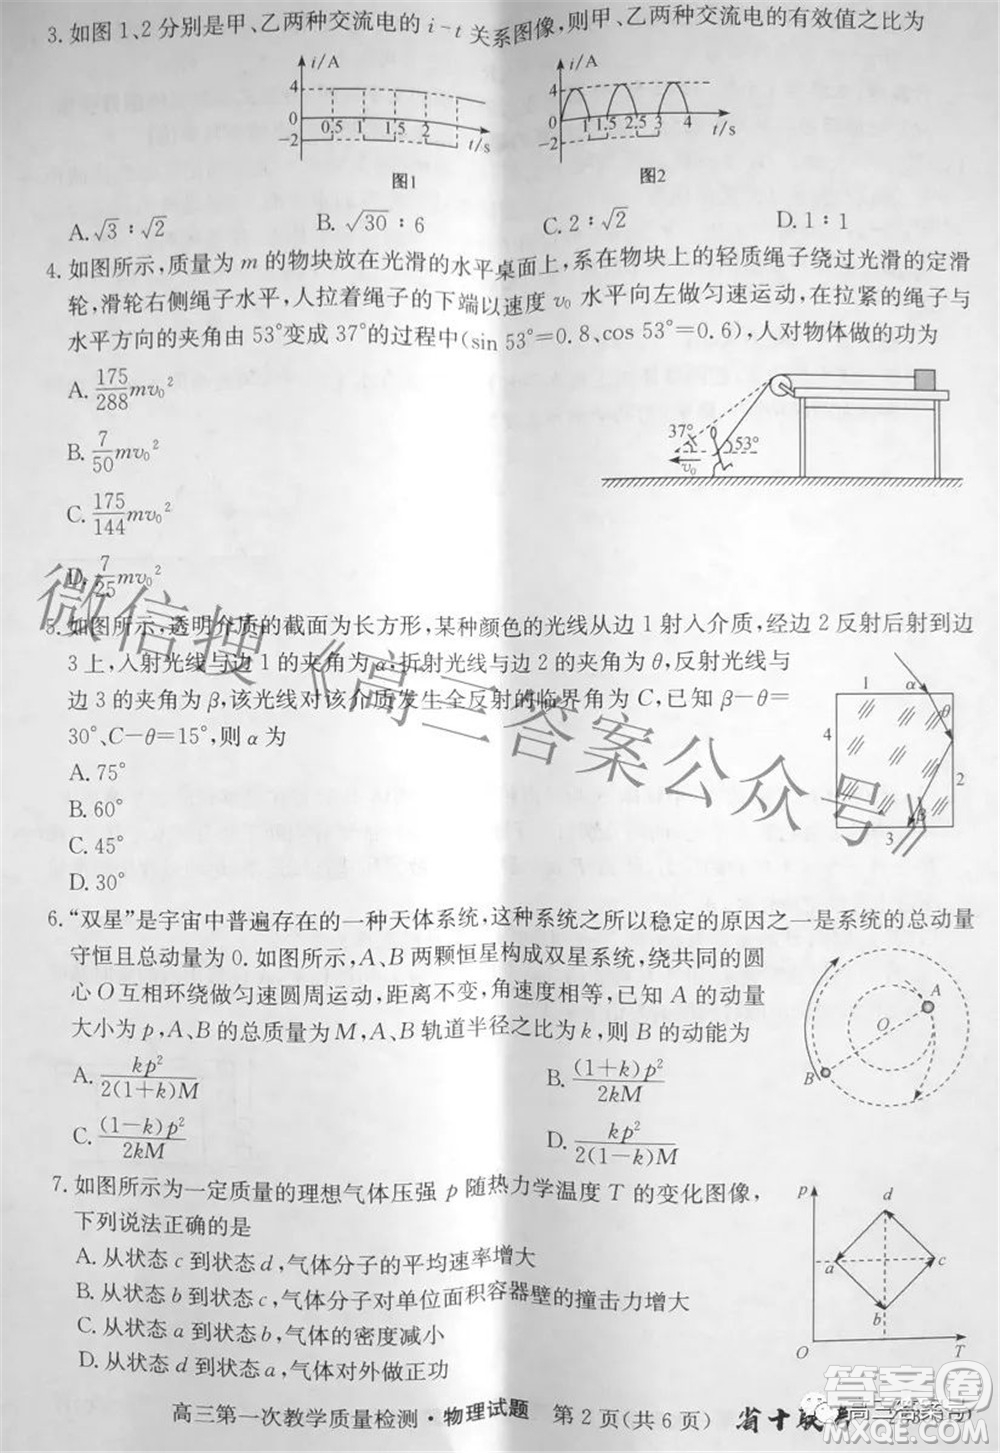 3. 如图1、2分别是甲、乙两种交流电的 i-t 关系图像,则甲、乙两种交流电的有效值之比为
i/A
4
0
-2
0.5 1 1.5 2
t/s
图1
i/A
4
0
-2
1 1.5 2.5 3 4
t/s
图2
A. √3 ∶ √2 B. √30 ∶ 6 C. 2 ∶ √2 D. 1 ∶ 1
4. 如图所示,质量为 m 的物块放在光滑的水平桌面上,系在物块上的轻质绳子绕过光滑的定滑
轮,滑轮右侧绳子水平,人拉着绳子的下端以速度 v₀ 水平向左做匀速运动,在拉紧的绳子与
水平方向的夹角由 53°变成 37°的过程中(sin 53°=0.8,cos 53°=0.6),人对物体做的功为
A. 175/288 mv₀²
B. 7/50 mv₀²
C. 175/144 mv₀²
D. 7/25 mv₀²
37°
53°
v₀
5. 如图所示,透明介质的截面为长方形,某种颜色的光线从边 1 射入介质,经边 2 反射后射到边
3 上,入射光线与边 1 的夹角为 α,折射光线与边 2 的夹角为 θ,反射光线与
边 3 的夹角为 β,该光线对该介质发生全反射的临界角为 C,已知 β-θ=
30°、C-θ=15°,则 α 为
A. 75°
B. 60°
C. 45°
D. 30°
1
α
θ
4
2
3
6. “双星”是宇宙中普遍存在的一种天体系统,这种系统之所以稳定的原因之一是系统的总动量
守恒且总动量为 0. 如图所示,A、B 两颗恒星构成双星系统,绕共同的圆
心 O 互相环绕做匀速圆周运动,距离不变,角速度相等,已知 A 的动量
大小为 p,A、B 的总质量为 M,A、B 轨道半径之比为 k,则 B 的动能为
A. kp²/2(1+k)M B. (1+k)p²/2kM
C. (1-k)p²/2kM D. kp²/2(1-k)M
A
O
B
7. 如图所示为一定质量的理想气体压强 p 随热力学温度 T 的变化图像,
下列说法正确的是
A. 从状态 c 到状态 d,气体分子的平均速率增大
B. 从状态 b 到状态 c,气体分子对单位面积容器壁的撞击力增大
C. 从状态 a 到状态 b,气体的密度减小
D. 从状态 d 到状态 a,气体对外做正功
p
d
a
c
b
O
T
高三第一次教学质量检测·物理试题 第 2 页(共 6 页) 省十联
微信搜《高三答案公众号》
高三答案号